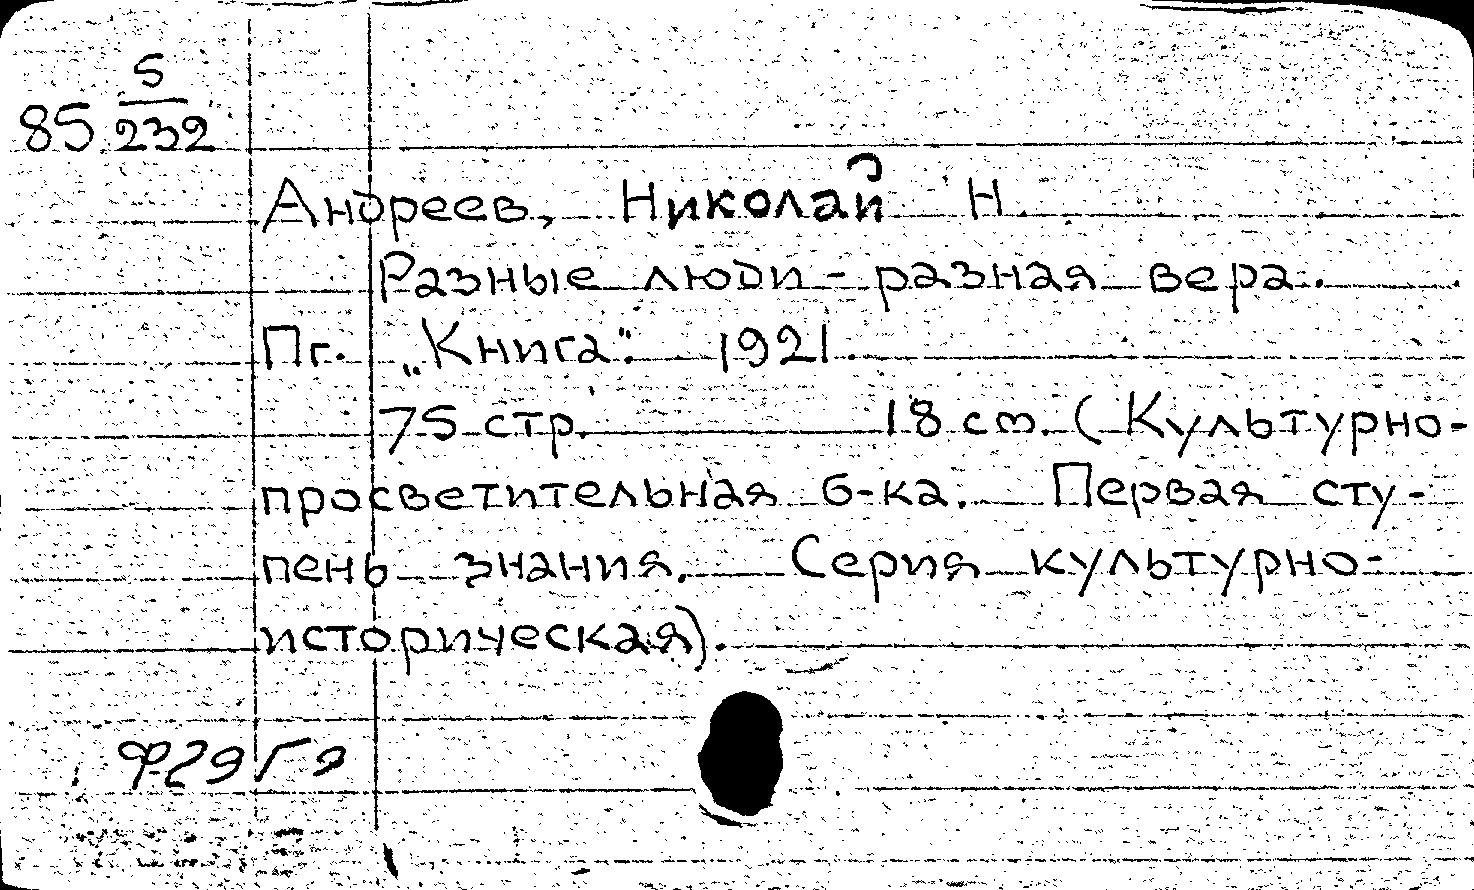 85 5/232
Андреев, Николай Н.
Разные люди - разная вера.
Пг. „Книга". 1921.
75 стр. 18 см. (Культурно-
просветительная б-ка. Первая сту-
пень знания. Серия культурно-
историческая).